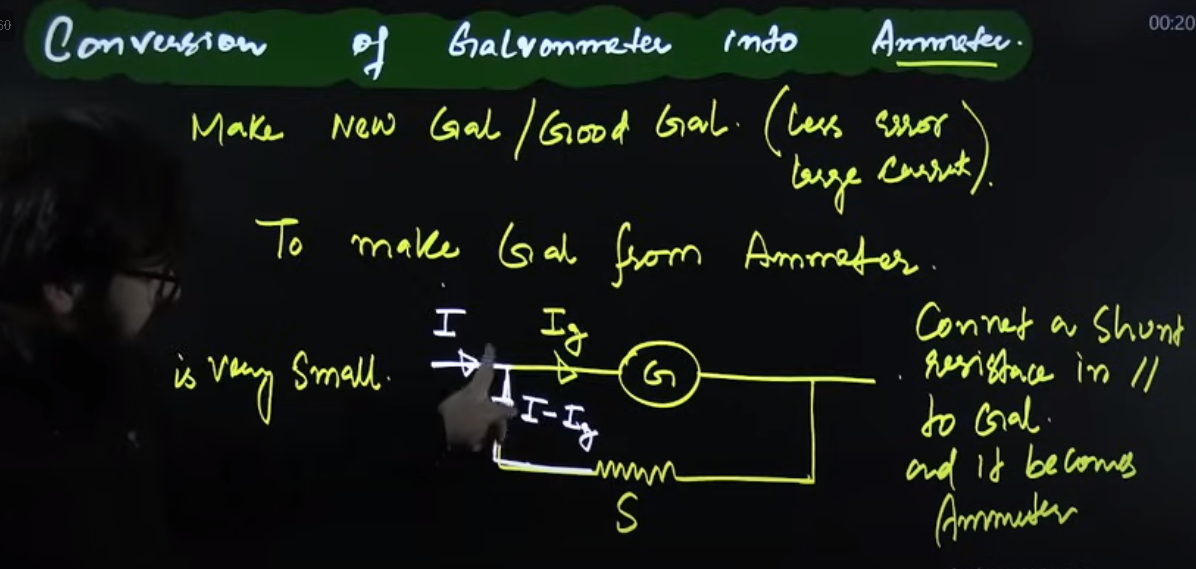 60
00:20
Conversion of Galvonmeter into Ammeter.
Make New Gal/Good Gal. (Less error
large current).
To make Gal from Ammeter.
I
Ig
G
I-Ig
S
is very small.
Connet a Shunt
resistace in //
to Gal.
and it becomes
Ammeter